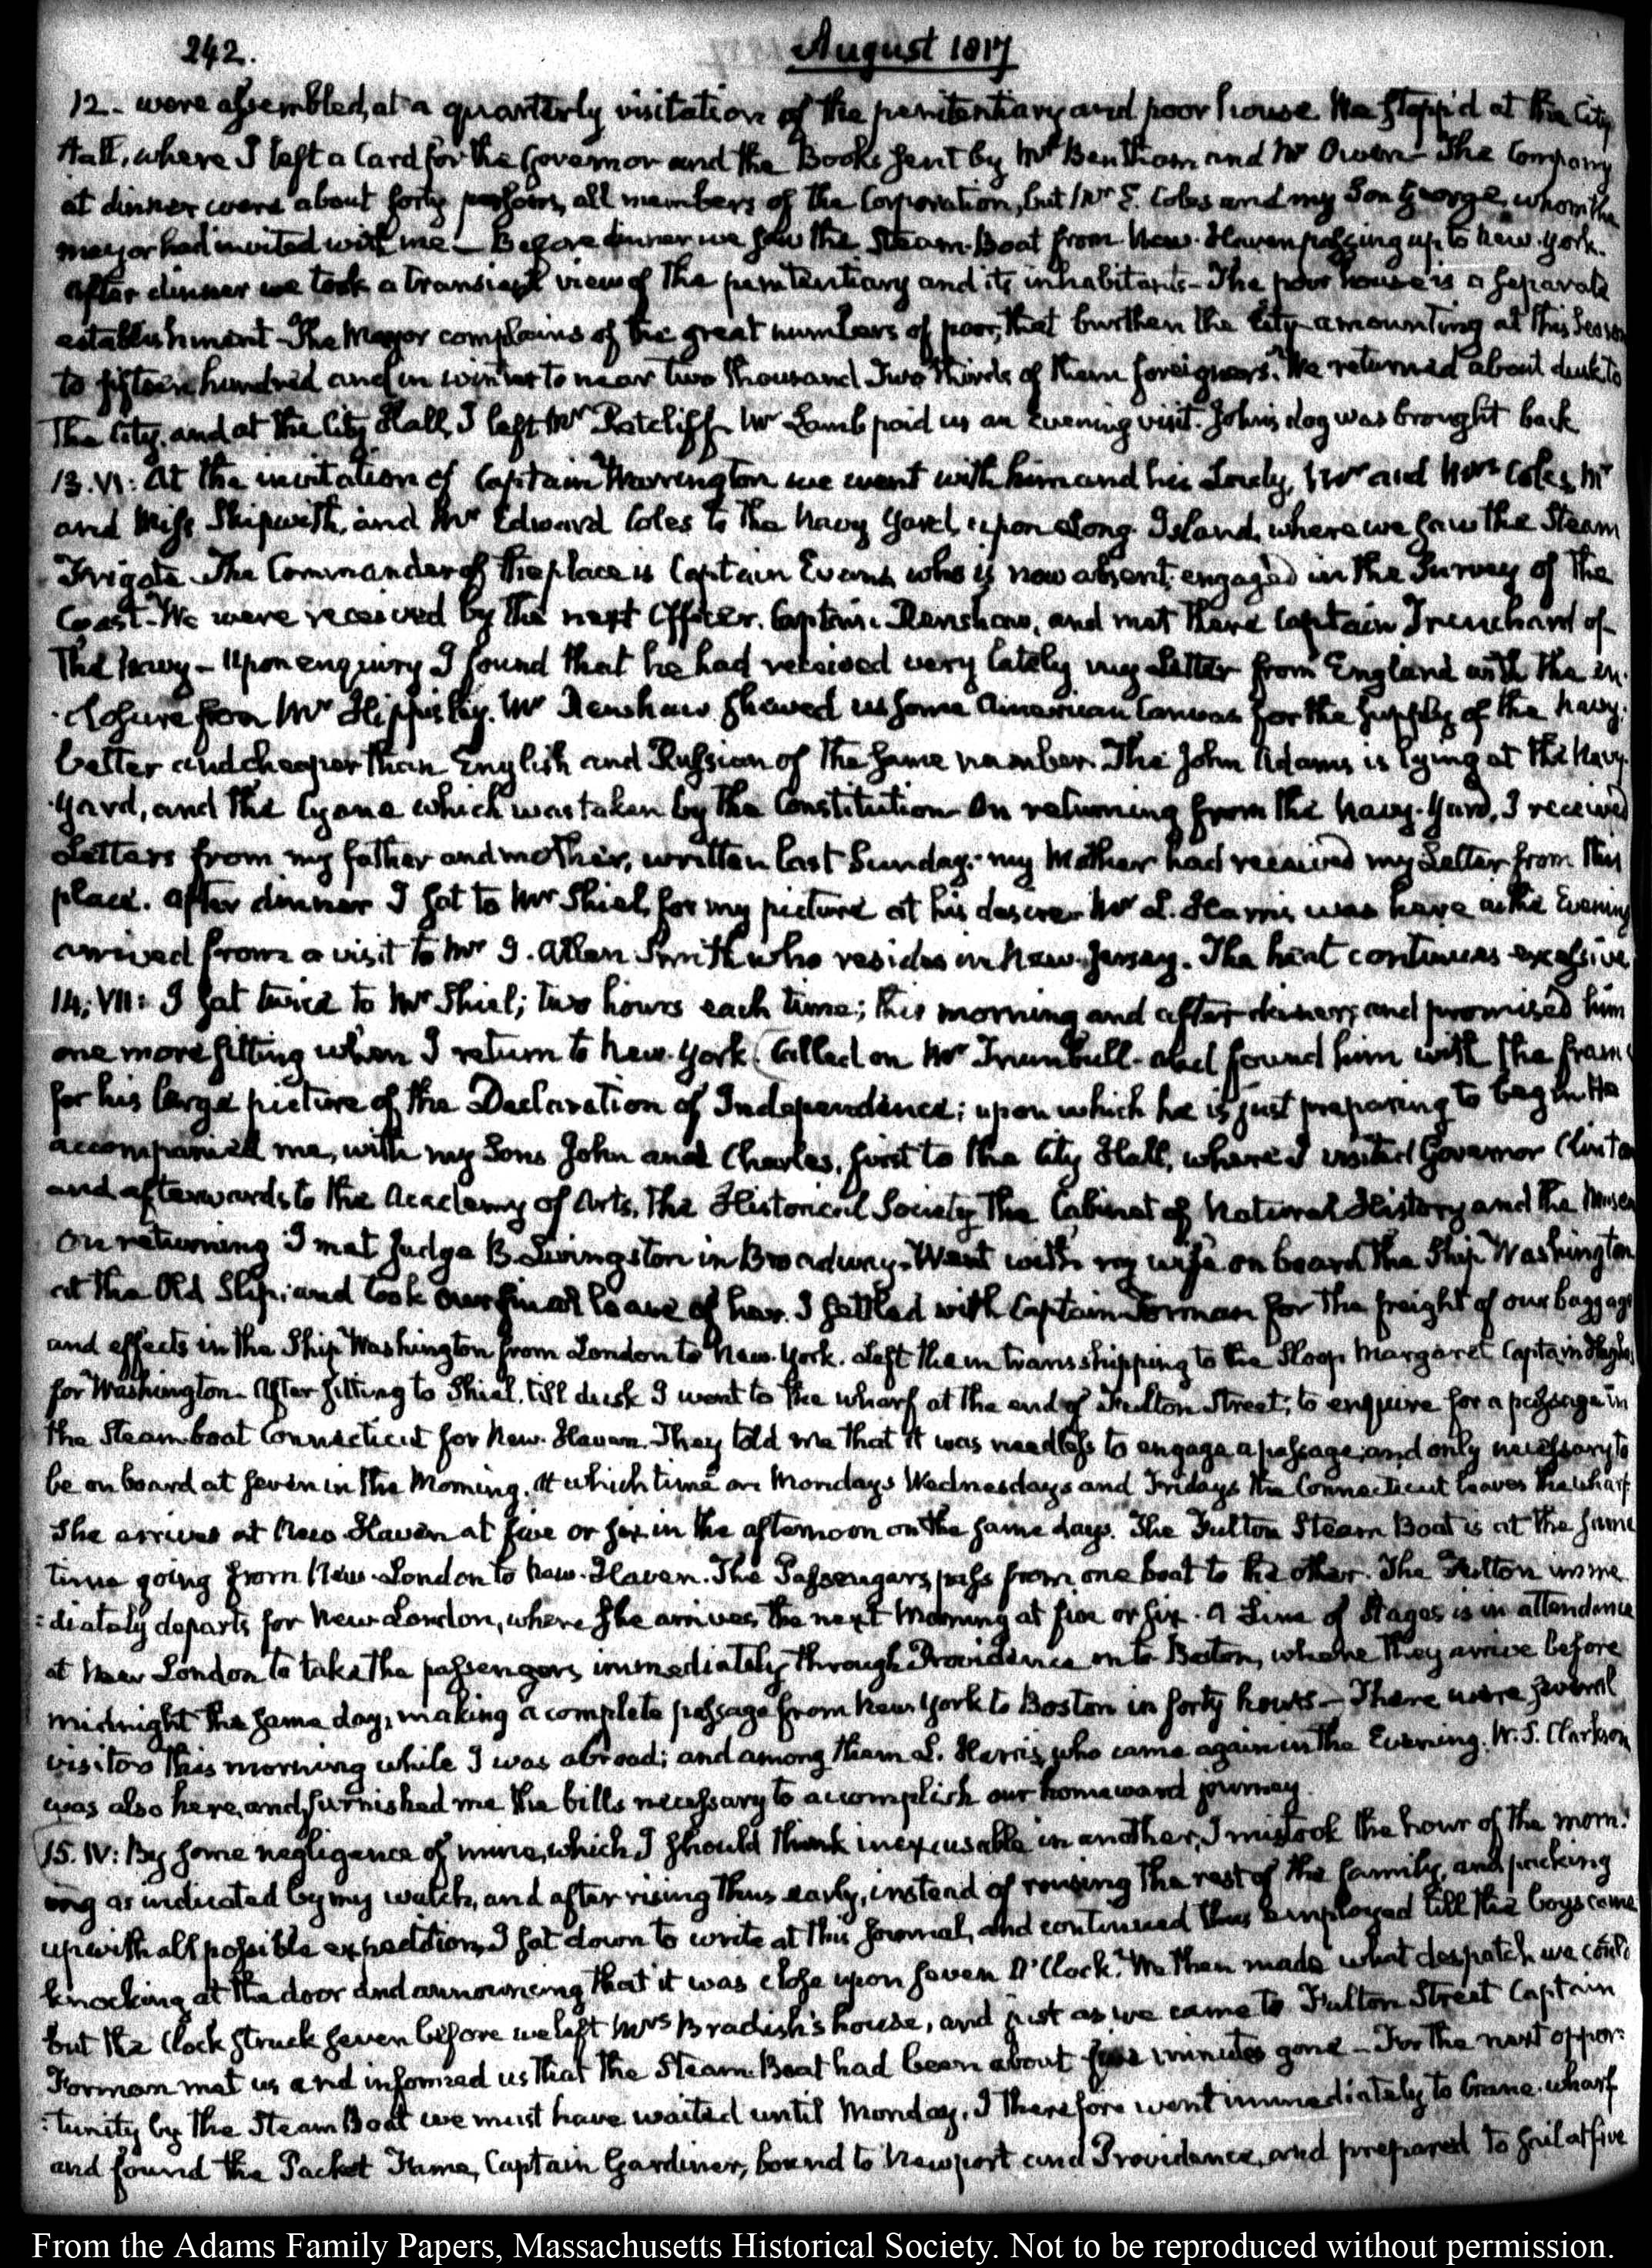 242.
August 1817
12. were assembled, at a quarterly visitation of the penitentiary and poor house. We stopp'd at the City
Hall, where I left a Card for the Governor and the Books sent by Mr Bentham and Mr Owen – The Company
at dinner were about forty persons, all members of the Corporation, but Mr E. Coles and my Son George, whom the
mayor had invited with me – Before dinner we saw the Steam-Boat from New-Haven passing up to New-York.
After dinner we took a transient view of the penitentiary and its inhabitants – The poor house is a separate
establishment – The Mayor complains of the great numbers of poor, that burthen the City amounting at this season
to fifteen hundred and in winter to near two thousand Two thirds of them foreigners. We returned about dusk to
the City, and at the City Hall, I left Mr Ratcliff. Mr Lamb paid us an evening visit. John's dog was brought back
13. VI: At the invitation of Captain Warrington we went with him and his Lady, Mr and Mrs Coles, Mr
and Miss Skipwith, and Mr Edward Coles to the Navy Yard, upon Long-Island, where we saw the Steam
Frigate. The Commander of the place is Captain Evans who is now absent, engaged in the Survey of the
Coast – We were received by the next Officer, Captain Renshaw, and met there Captain Trenchard of
the Navy – Upon enquiry I found that he had received very lately my Letter from England with the in-
-closure from Mr Hippisley. Mr Renshaw shewed us some American Canvas for the supply of the Navy.
better and cheaper than English and Russian of the same number. The John Adams is lying at the Navy-
Yard, and the Cyane which was taken by the Constitution. On returning from the Navy-Yard, I received
Letters from my father and mother, written last Sunday. my Mother had received my Letter from this
place. After dinner I sat to Mr Shiel, for my picture at his desire. Mr L. Harris was here in the Evening
arrived from a visit to Mr J. Allen Smith who resides in New-Jersey. The heat continues excessive
14. VII: I sat twice to Mr Shiel; two hours each time; this morning and after dinner; and promised him
one more sitting when I return to New-York. Called on Mr Trumbull and found him with the frame
for his large picture of the Declaration of Independence; upon which he is just preparing to begin. He
accompanied me, with my Sons John and Charles, first to the City Hall, where I visited Governor Clinton
and afterwards to the Academy of Arts, the Historical Society, the Cabinet of Natural History and the Museum
On returning I met Judge B. Livingston in Broadway. Went with my wife on board the Ship Washington
at the Old Slip, and took our final leave of her. I settled with Captain Forman for the freight of our baggage
and effects in the Ship Washington from London to New-York. Left them transshipping to the Sloop Margaret Captain
for Washington. After sitting to Shiel, till dusk I went to the wharf at the end of Fulton Street, to enquire for a passage in
the Steam-boat Connecticut for New-Haven. They told me that it was needless to engage a passage, and only necessary to
be on board at seven in the Morning. At which time on Mondays Wednesdays and Fridays the Connecticut leaves the wharf
She arrives at New-Haven at five or six in the afternoon on the same days. The Fulton Steam Boat is at the same
time going from New-London to New-Haven. The Passengers pass from one boat to the other. The Fulton imme
:diately departs for New-London, where she arrives the next Morning at five or six. A Line of Stages is in attendance
at New London to take the passengers immediately through Providence on to Boston, where they arrive before
midnight the same day, making a complete passage from New York to Boston in forty hours – There were several
visitors this morning while I was abroad; and among them L. Harris, who came again in the Evening. W. S. Clarkson
was also here, and furnished me the bills necessary to accomplish our homeward journey.
15. IV: By some negligence of mine, which I should think inexcusable in another, I mistook the hour of the morn:
ing as indicated by my watch, and after rising thus early, instead of rousing the rest of the family, and packing
up with all possible expedition, I sat down to write at this Journal, and continued thus employed till the boys came
knocking at the door and announcing that it was close upon seven O'Clock. We then made what despatch we could
but the Clock struck seven before we left Mrs Bradish's house, and just as we came to Fulton Street Captain
Forman met us and informed us that the Steam-Boat had been about five minutes gone – For the next oppor:
:tunity by the Steam Boat we must have waited until Monday. I therefore went immediately to Crane-wharf
and found the Packet Fame, Captain Gardiner, bound to Newport and Providence, and prepared to sail at five
From the Adams Family Papers, Massachusetts Historical Society. Not to be reproduced without permission.